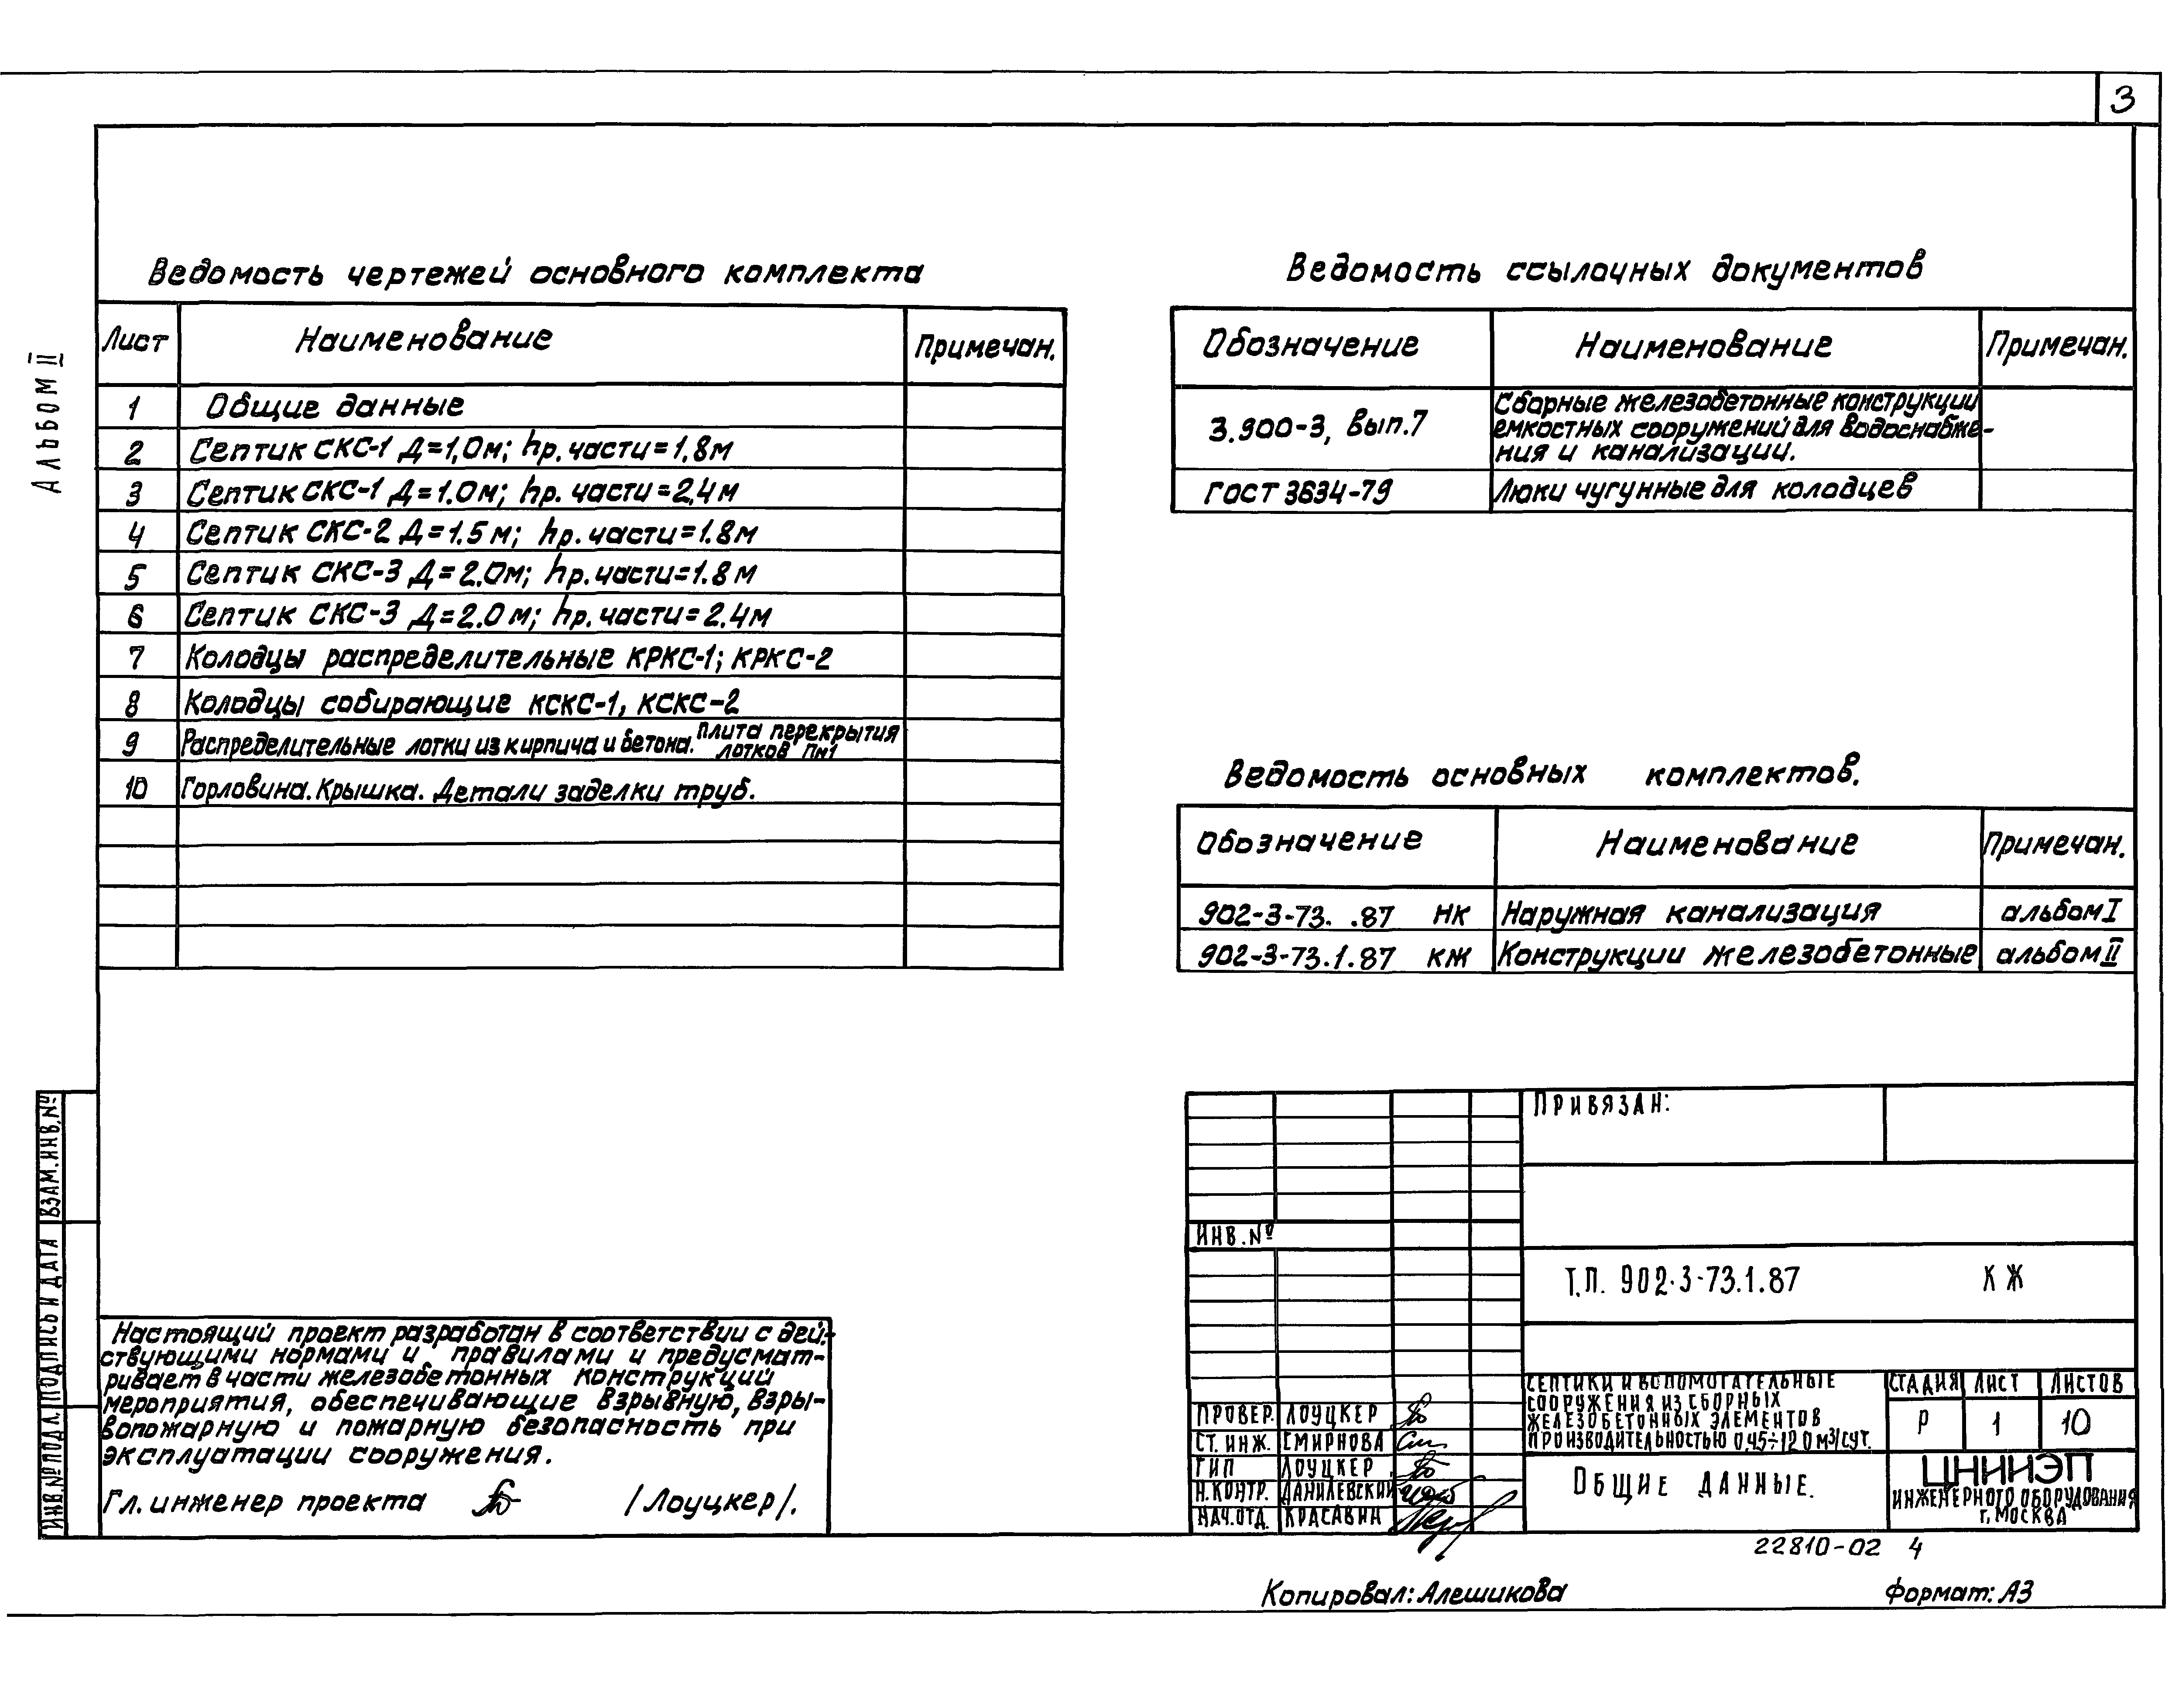 3
АЛЬБОМ II
Ведомость чертежей основного комплекта
Лист Наименование Примечан.
1 Общие данные
2 Септик СКС-1 Д=1,0м; hр.части=1,8м
3 Септик СКС-1 Д=1.0м; hр. части=2,4м
4 Септик СКС-2 Д=1.5м; hр.части=1.8м
5 Септик СКС-3 Д=2.0м; hр.части=1.8м
6 Септик СКС-3 Д=2.0м; hр.части=2.4м
7 Колодцы распределительные КРКС-1; КРКС-2
8 Колодцы собирающие КСКС-1, КСКС-2
9 Распределительные лотки из кирпича и бетона. Плита перекрытия
лотков Пм1
10 Горловина. Крышка. Детали заделки труб.
Ведомость ссылочных документов
Обозначение Наименование Примечан.
3.900-3, Вып.7 Сборные железобетонные конструкции
емкостных сооружений для водоснабже-
ния и канализации.
ГОСТ 3634-79 Люки чугунные для колодцев
Ведомость основных комплектов.
Обозначение Наименование Примечан.
902-3-73. .87 НК Наружная канализация альбом I
902-3-73.1.87 КЖ Конструкции железобетонные альбом II
ВЗАМ.ИНВ.№
ПОДПИСЬ И ДАТА
ИНВ.№ ПОДЛ.
Настоящий проект разработан в соответствии с дей-
ствующими нормами и правилами и предусмат-
ривает в части железобетонных конструкций
мероприятия, обеспечивающие взрывную, взры-
вопожарную и пожарную безопасность при
эксплуатации сооружения.
Гл. инженер проекта /Лоуцкер/.
ПРИВЯЗАН:
ИНВ.№
Т.П. 902-3-73.1.87 КЖ
ПРОВЕР. ЛОУЦКЕР
СТ. ИНЖ. СМИРНОВА
ГИП ЛОУЦКЕР
Н.КОНТР. ДАНИЛЕВСКИЙ
НАЧ.ОТД. КРАСАВИН
СЕПТИКИ И ВСПОМОГАТЕЛЬНЫЕ
СООРУЖЕНИЯ ИЗ СБОРНЫХ
ЖЕЛЕЗОБЕТОННЫХ ЭЛЕМЕНТОВ
ПРОИЗВОДИТЕЛЬНОСТЬЮ 0,45÷12,0 м3/сут.
СТАДИЯ ЛИСТ ЛИСТОВ
Р 1 10
ОБЩИЕ ДАННЫЕ.
ЦНИИЭП
ИНЖЕНЕРНОГО ОБОРУДОВАНИЯ
г. МОСКВА
22810-02 4
Копировал: Алешикова Формат: А3